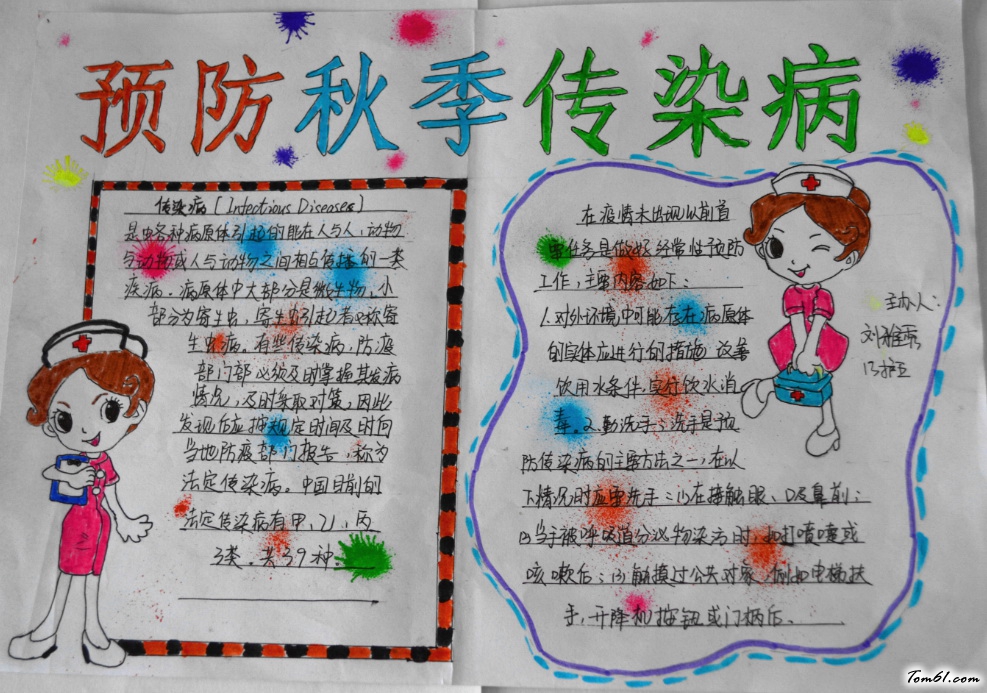 预防秋季传染病
传染病(Infectious Diseases)
是由各种病原体引起的能在人与人、动物
与动物或人与动物之间相互传播的一类
疾病。病原体中大部分是微生物，小
部分为寄生虫，寄生虫引起者又称寄
生虫病。有些传染病，防疫
部门部必须及时掌握其发病
情况，及时采取对策，因此
发现后应按规定时间及时向
当地防疫部门报告，称为
法定传染病。中国目前的
法定传染病有甲、乙、丙
3类，共39种。
在疫情未出现以前首
要任务是做好经常性预防
工作，主要内容如下：
1.对外环境中可能存在病原体
的实体应进行的措施 改善
饮用水条件，实行饮水消
毒。2.勤洗手：洗手是预
防传染病的主要方法之一，在以
下情况时应要洗手：(1)在接触眼、口及鼻前；
(2)当手被呼吸道分泌物染污时，如打喷嚏或
咳嗽后；(3)触摸过公共对象，例如电梯扶
手，升降机按钮或门柄后、
主办人：
刘
Tom61.com